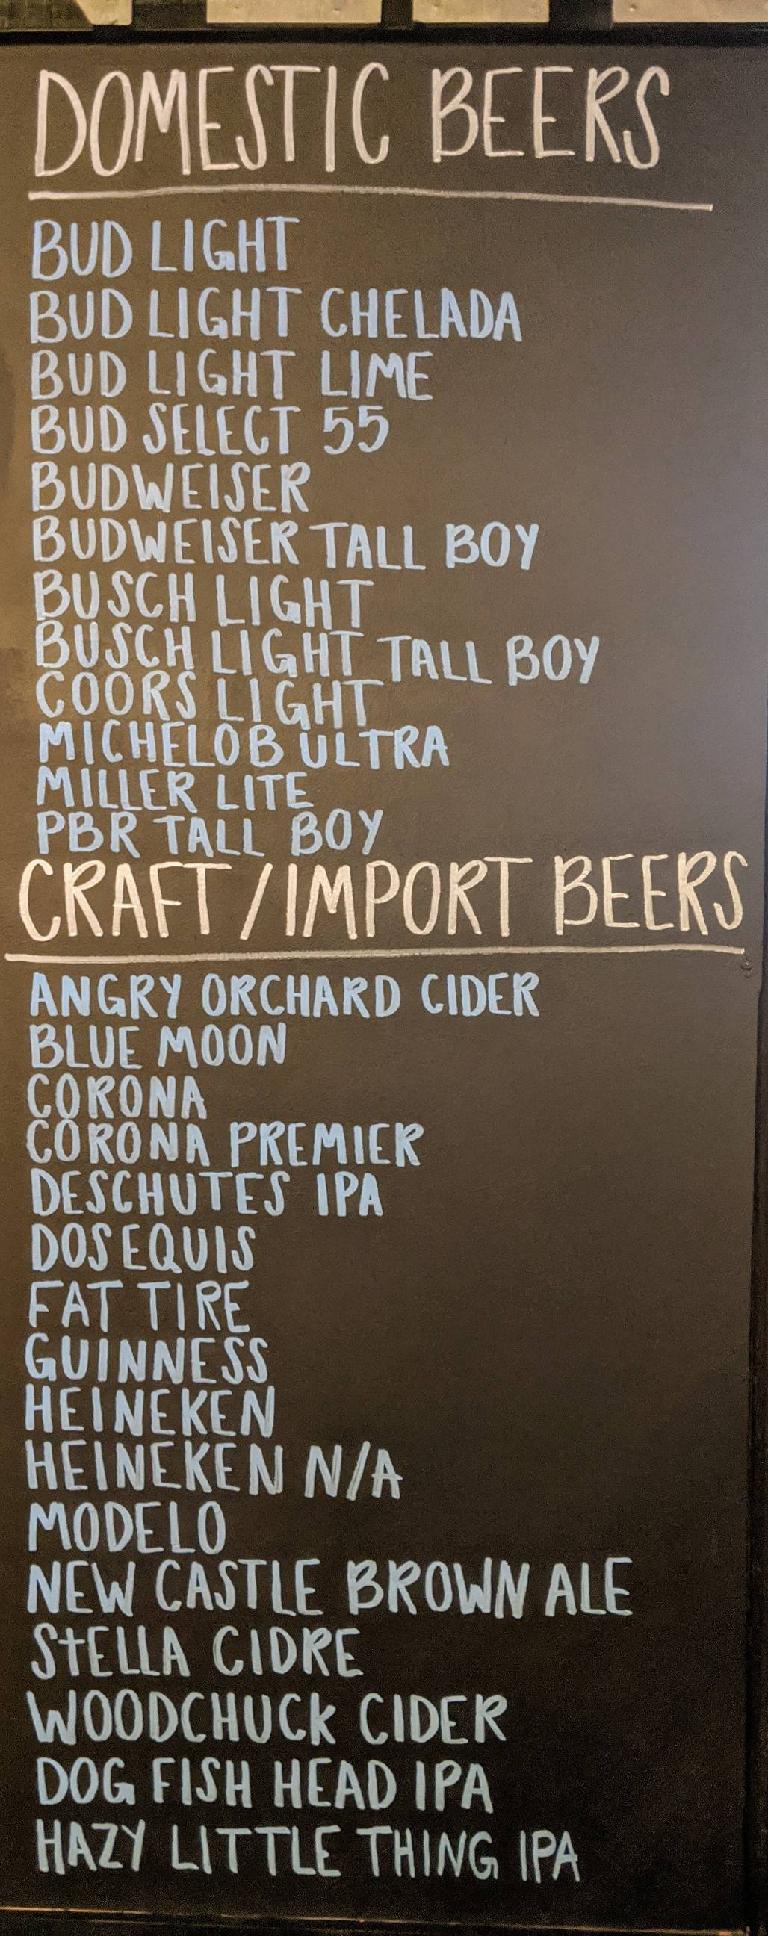 DOMESTIC BEERS
BUD LIGHT
BUD LIGHT CHELADA
BUD LIGHT LIME
BUD SELECT 55
BUDWEISER
BUDWEISER TALL BOY
BUSCH LIGHT
BUSCH LIGHT TALL BOY
COORS LIGHT
MICHELOB ULTRA
MILLER LITE
PBR TALL BOY
CRAFT/IMPORT BEERS
ANGRY ORCHARD CIDER
BLUE MOON
CORONA
CORONA PREMIER
DESCHUTES IPA
DOS EQUIS
FAT TIRE
GUINNESS
HEINEKEN
HEINEKEN N/A
MODELO
NEW CASTLE BROWN ALE
STELLA CIDRE
WOODCHUCK CIDER
DOG FISH HEAD IPA
HAZY LITTLE THING IPA